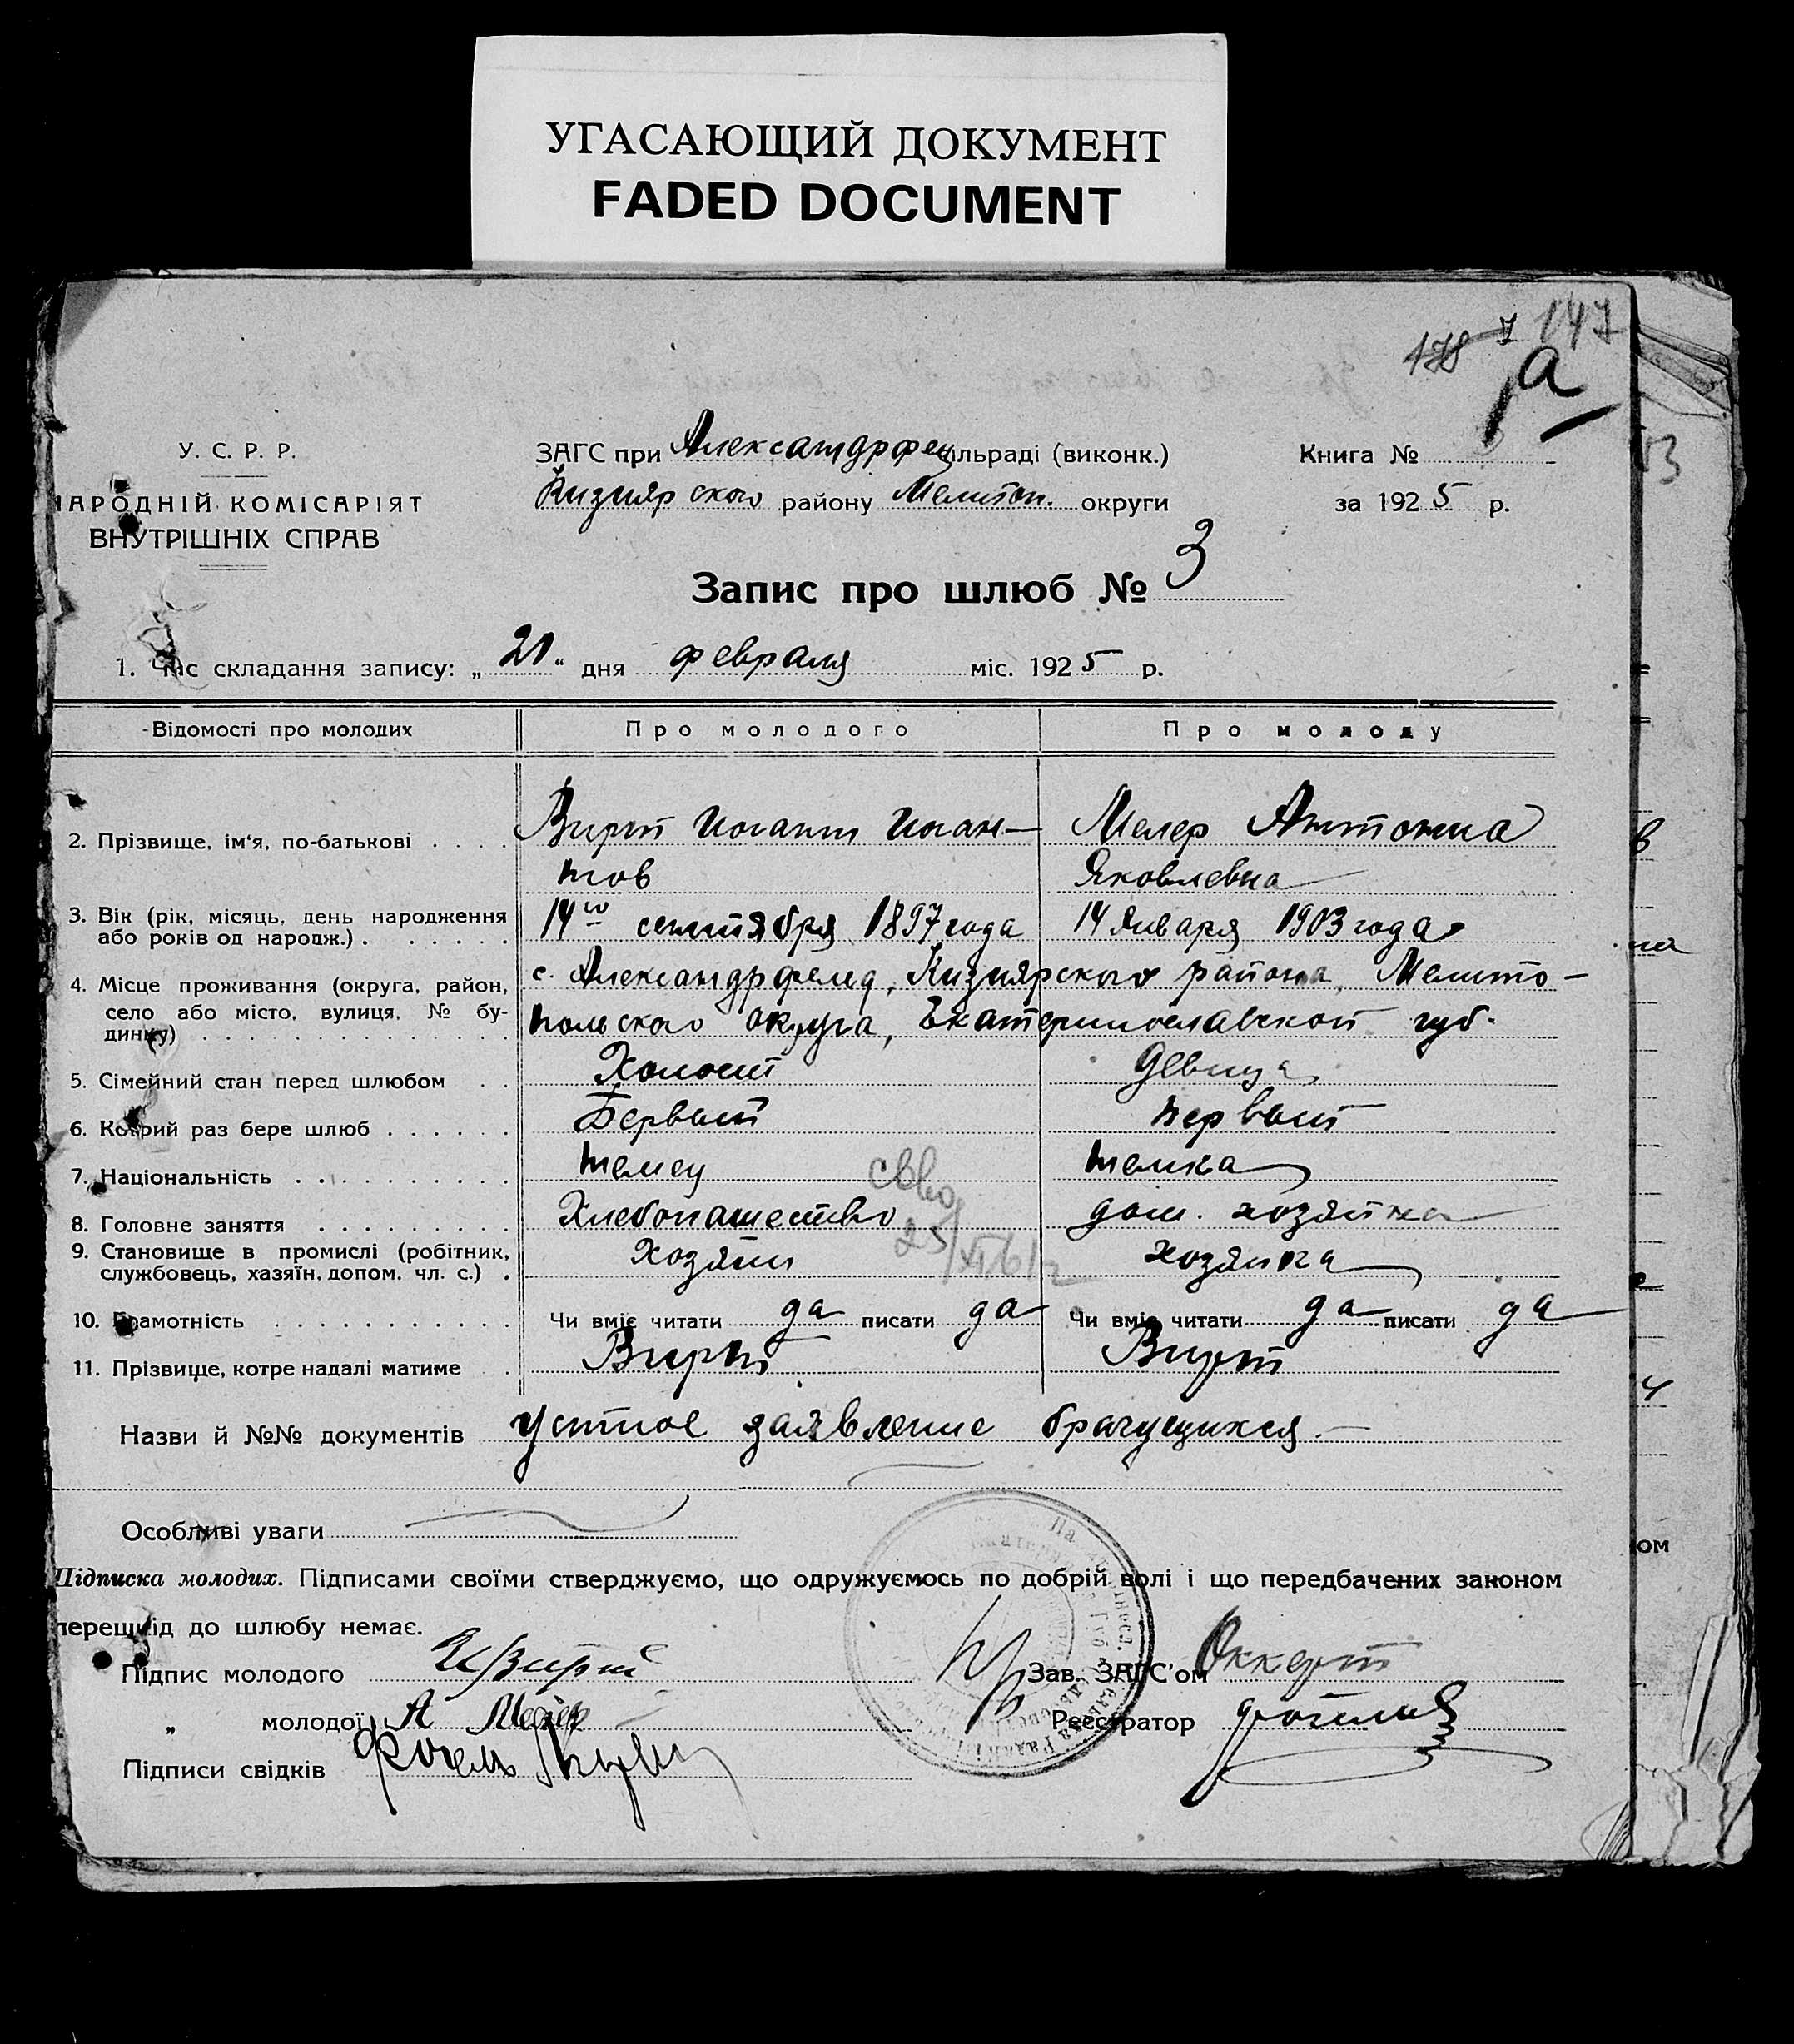 УГАСАЮЩИЙ ДОКУМЕНТ
FADED DOCUMENT
178 147
а
У. С. Р. Р.
НАРОДНІЙ КОМІСАРІЯТ
ВНУТРІШНІХ СПРАВ
ЗАГС при Александрфел сільраді (виконк.)
Кизиярского району Мелитоп. округи
Книга №
за 1925 р.
Запис про шлюб № 3
1. Час складання запису: „ “ дня февраля міс. 1925 р.
Відомості про молодих Про молодого Про молоду
2. Прізвище, ім‘я, по-батькові Вирт Иогант Иоган- Мелер Антонина
тов Яковлевна
3. Вік (рік, місяць, день народження
або років од народж.) 14го сентября 1897 года 14 Января 1903 года
4. Місце проживання (округа, район,
село або місто, вулиця, № бу-
динку)
с. Александрфельд, Кизиярского района, Мелито-
польского округа, Екатеринославской губ.
5. Сімейний стан перед шлюбом Холост Девица
6. Котрий раз бере шлюб Первый первый
7. Національність немец немка
8. Головне заняття Хлебопашество дом. хозяйка
9. Становище в промислі (робітник,
службовець, хазяїн, допом. чл. с.) Хозяин хозяйка
25/XI 61г
10. Грамотність Чи вміє читати да писати да Чи вміє читати да писати да
11. Прізвище, котре надалі матиме Вирт Вирт
Назви й №№ документів устное заявление брачущихся.
Особливі уваги
Підписка молодих. Підписами своїми стверджуємо, що одружуємось по добрій волі і що передбачених законом
перешкід до шлюбу немає.
Підпис молодого И Вирт
„ молодої А Мелер
Підписи свідків
Зав. ЗАГС‘ом Оккерт
Реєстратор